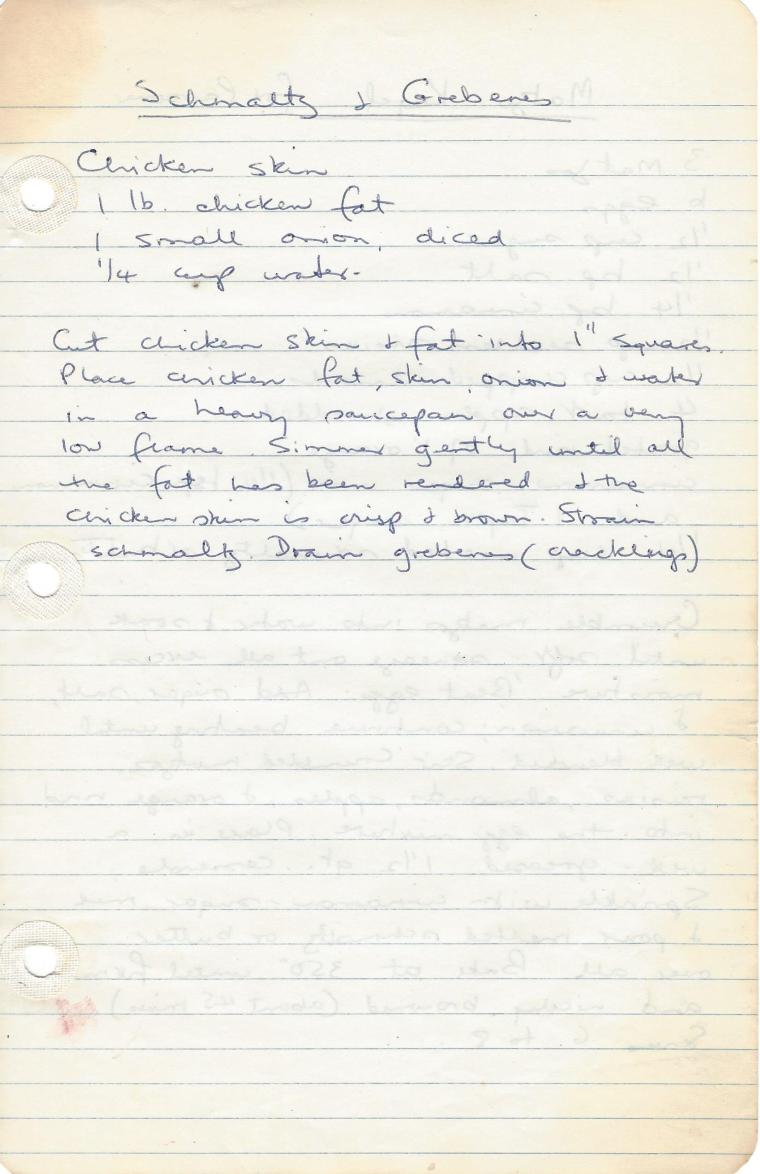 Schmaltz & Grebenes
Chicken skin
1 lb. chicken fat
1 small onion, diced
1/4 cup water.
Cut chicken skin & fat into 1" squares.
Place chicken fat, skin, onion & water
in a heavy saucepan over a very
low flame. Simmer gently until all
the fat has been rendered & the
chicken skin is crisp & brown. Strain
schmaltz. Drain grebenes (cracklings)